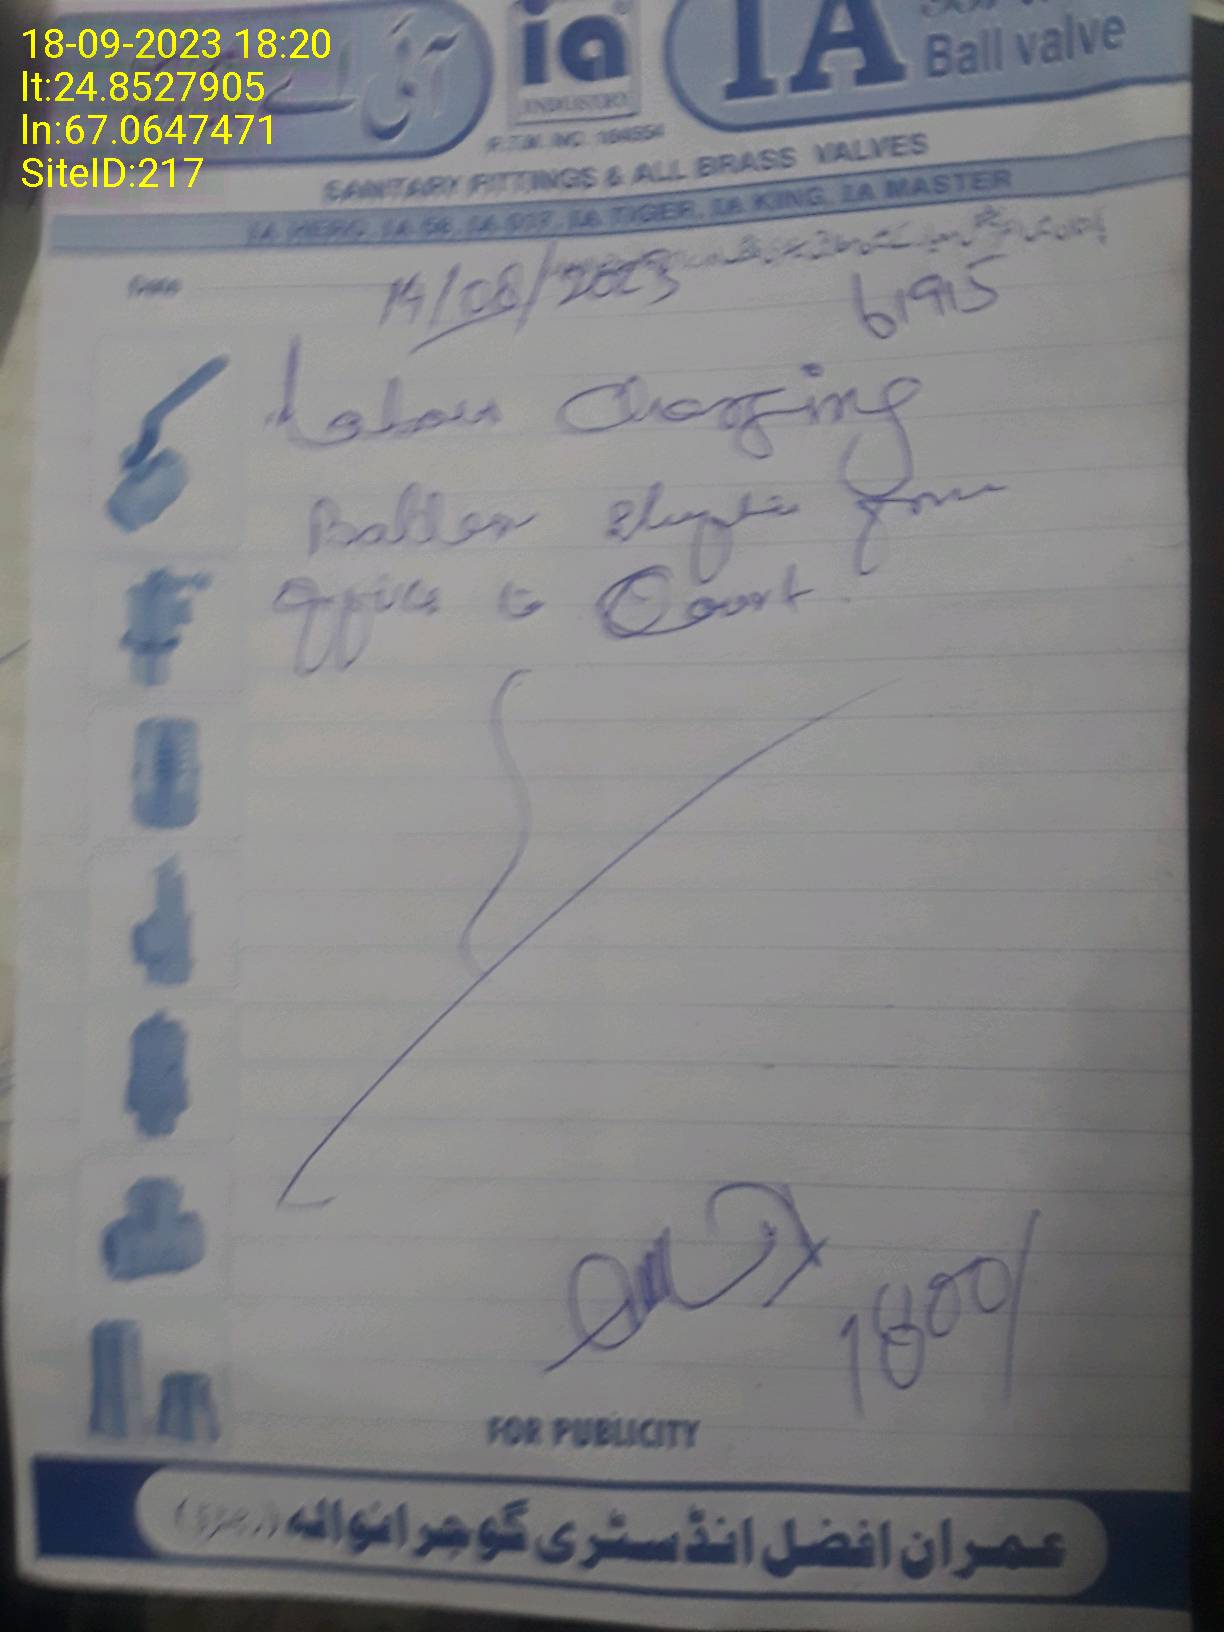 18-09-2023 18:20
lt:24.8527905
ln:67.0647471
SiteID:217
آئی اے
ia
INDUSTRY
IA
Ball valve
SANITARY FITTINGS & ALL BRASS VALVES
IA HERO, IA 56, IA 017, IA TIGER, IA KING, IA MASTER
14/08/2023
61915
Labour Charging
from
Office to Court
1800/
FOR PUBLICITY
عمران افضل انڈسٹری گوجرانوالہ